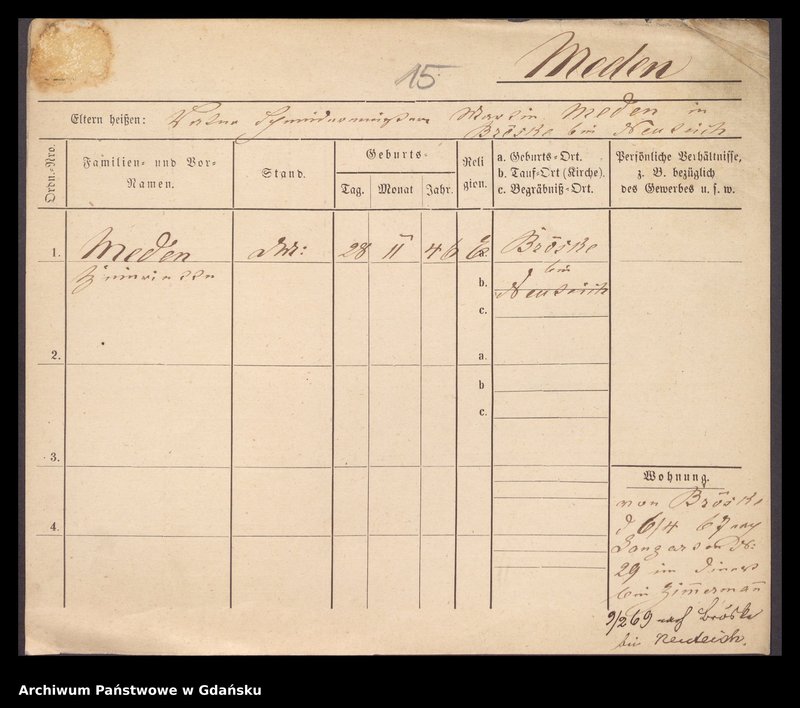 15.
Meden
Eltern heißen: Vater Schmidermeister Martin Meden in
Bröske bei Neuteich
Ordn.-Nro.
Familien- und Vor-
Namen.
Stand.
Geburts-
Tag. Monat Jahr.
Reli
gion.
a. Geburts-Ort.
b. Tauf-Ort (Kirche).
c. Begräbniß-Ort.
Persönliche Verhältnisse,
z. B. bezüglich
des Gewerbes u. s. w.
1. Meden 28 II 46 a. Bröske
bei
b. Neuteich
c.
2. a.
b
c.
3.
4.
Wohnung.
von Bröske
d 6/4 67 nach
Langgarten No:
29 im Dienst
bei Zimmermann
9/2 69 nach Bröske
bei Neuteich.
Archiwum Państwowe w Gdańsku